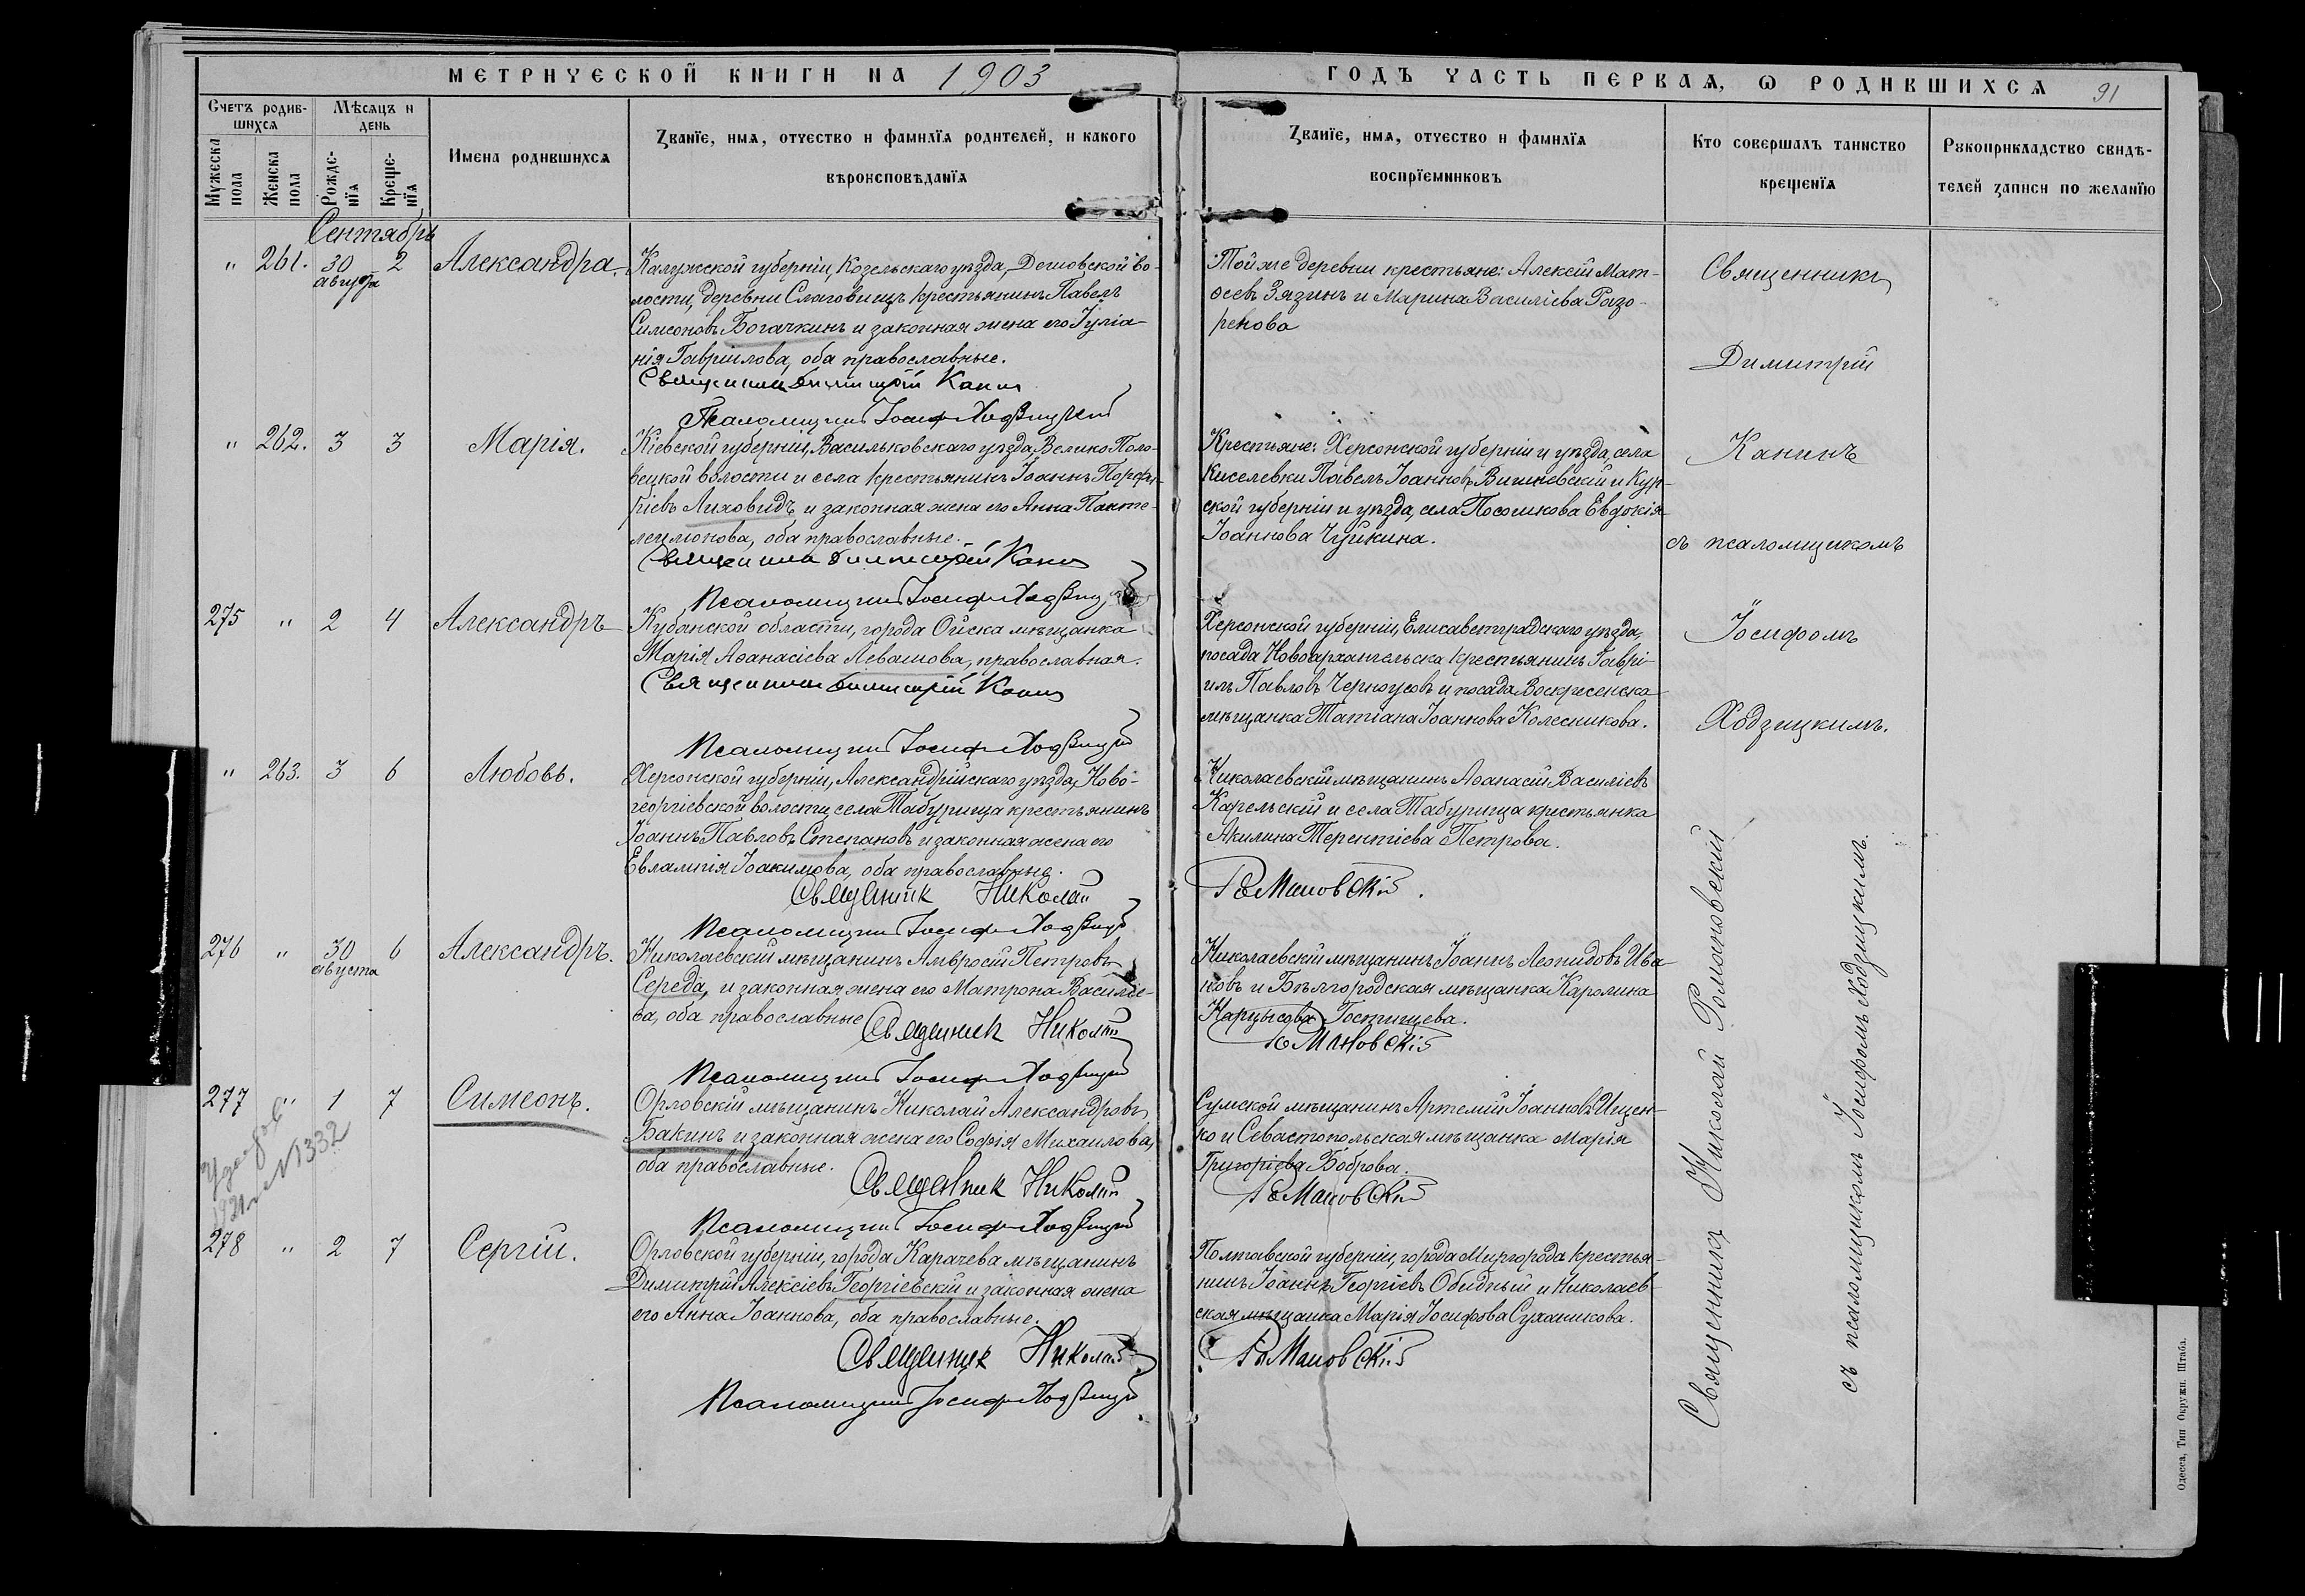 МЕТРИЧЕСКОЙ КНИГИ НА 1903
ГОДЪ ЧАСТЬ ПЕРВАЯ, Ѡ РОДИВШИХСЯ 91
Счетъ родив-
шихся
Мѣсяцъ и
день
Мужеска
пола
Женска
пола
Рожде-
нїя
Креще-
нїя
Имена родившихся
Званїе, имя, отчество и фамилїя родителей, и какого
вѣроисповѣданїя
Званїе, имя, отчество и фамилїя
воспрїемниковъ
Кто совершалъ таинство
крещенїя
Рукоприкладство свидѣ-
телей записи по желанїю
Сентябрь
" 261. 30 августа 2 Александра.
Калужской губерніи, Козельскаго уѣзда, Дешовской во-
лости, деревни Слаговищъ крестьянинъ Павелъ
Симеоновъ Богачкинъ и законная жена его Іуліа-
нія Гавріилова, оба православные.
Священникъ Димитрій Канинъ
Псаломщикъ Іосифъ Ходзицкій
Той же деревни крестьяне: Алексій Мат-
ѳеевъ Зязинъ и Марина Василіева Разо-
ренова
" 262. 3 3 Марія.
Кіевской губерніи, Васильковскаго уѣзда, Велико Поло-
вецкой волости и села крестьянинъ Іоаннъ Порфи-
ріевъ Лиховидъ и законная жена его Анна Панте-
леимонова, оба православные.
Священникъ Димитрій Канинъ
Псаломщикъ Іосифъ Ходзицкій
Крестьяне: Херсонской губерніи и уѣзда, села
Киселевки Павелъ Іоанновъ Вишневскій и Кур-
ской губерніи и уѣзда, села Посошкова Евдокія
Іоаннова Чуйкина.
275 " 2 4 Александръ
Кубанской области, города Ейска мѣщанка
Марія Аѳанасіева Левашова, православная.
Священникъ Димитрій Канинъ
Псаломщикъ Іосифъ Ходзицкій
Херсонской губерніи, Елисаветградскаго уѣзда,
посада Новоархангельска крестьянинъ Гаврі-
илъ Павловъ Черноусовъ и посада Воскресенска
мѣщанка Татіана Іоаннова Колесникова.
" 263. 3 6 Любовь.
Херсонской губерніи, Александрійскаго уѣзда, Ново-
георгіевской волости, села Табурища крестьянинъ
Іоаннъ Павловъ Степановъ и законная жена его
Евлампія Іоакимова, оба православные.
Священникъ Николай Романовскій.
Псаломщикъ Іосифъ Ходзицкій
Николаевскій мѣщанинъ Аѳанасій Василіевъ
Карельскій и села Табурища крестьянка
Акилина Терентіева Петрова.
276 " 30 августа 6 Александръ.
Николаевскій мѣщанинъ Амвросій Петровъ
Середа, и законная жена его Матрона Василіе-
ва, оба православные
Священникъ Николай Романовскій
Псаломщикъ Іосифъ Ходзицкій
Николаевскій мѣщанинъ Іоаннъ Леонидовъ Ива
новъ и Бѣлгородская мѣщанка Каролина
Нарцысова Гостищева.
277 " 1 7 Симеонъ.
1921 г. №1332
Орловскій мѣщанинъ Николай Александровъ
Бакинъ и законная жена его Софія Михаилова,
оба православные.
Священникъ Николай Романовскій
Псаломщикъ Іосифъ Ходзицкій
Сумской мѣщанинъ Артемій Іоанновъ Ищен-
ко и Севастопольская мѣщанка Марія
Григоріева Боброва.
278 " 2 7 Сергій.
Орловской губерніи, города Карачева мѣщанинъ
Димитрій Алексіевъ Георгіевскій и законная жена
его Анна Іоаннова, оба православные.
Священникъ Николай Романовскій
Псаломщикъ Іосифъ Ходзицкій
Полтавской губерніи, города Миргорода крестья-
нинъ Іоаннъ Георгіевъ Обидный и Николаев-
ская мѣщанка Марія Іосифова Суханикова.
Священникъ
Димитрій
Канинъ
съ псаломщикомъ
Іосифомъ
Ходзицкимъ.
Священникъ Николай Романовскій
съ псаломщикомъ Іосифомъ Ходзицкимъ.
Одесса, Тип Окружн. Штаба.